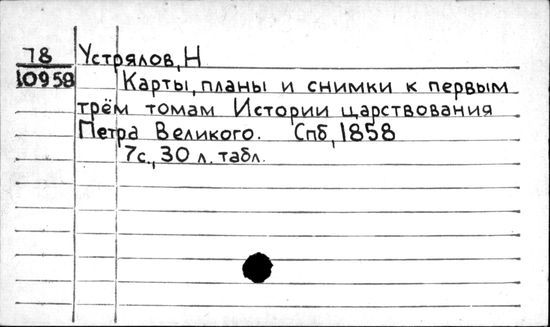 78 Устрялов, Н
10958 Карты, планы и снимки к первым
трём томам Истории царствования
Петра Великого. Спб, 1858
7с., 30 л. табл.